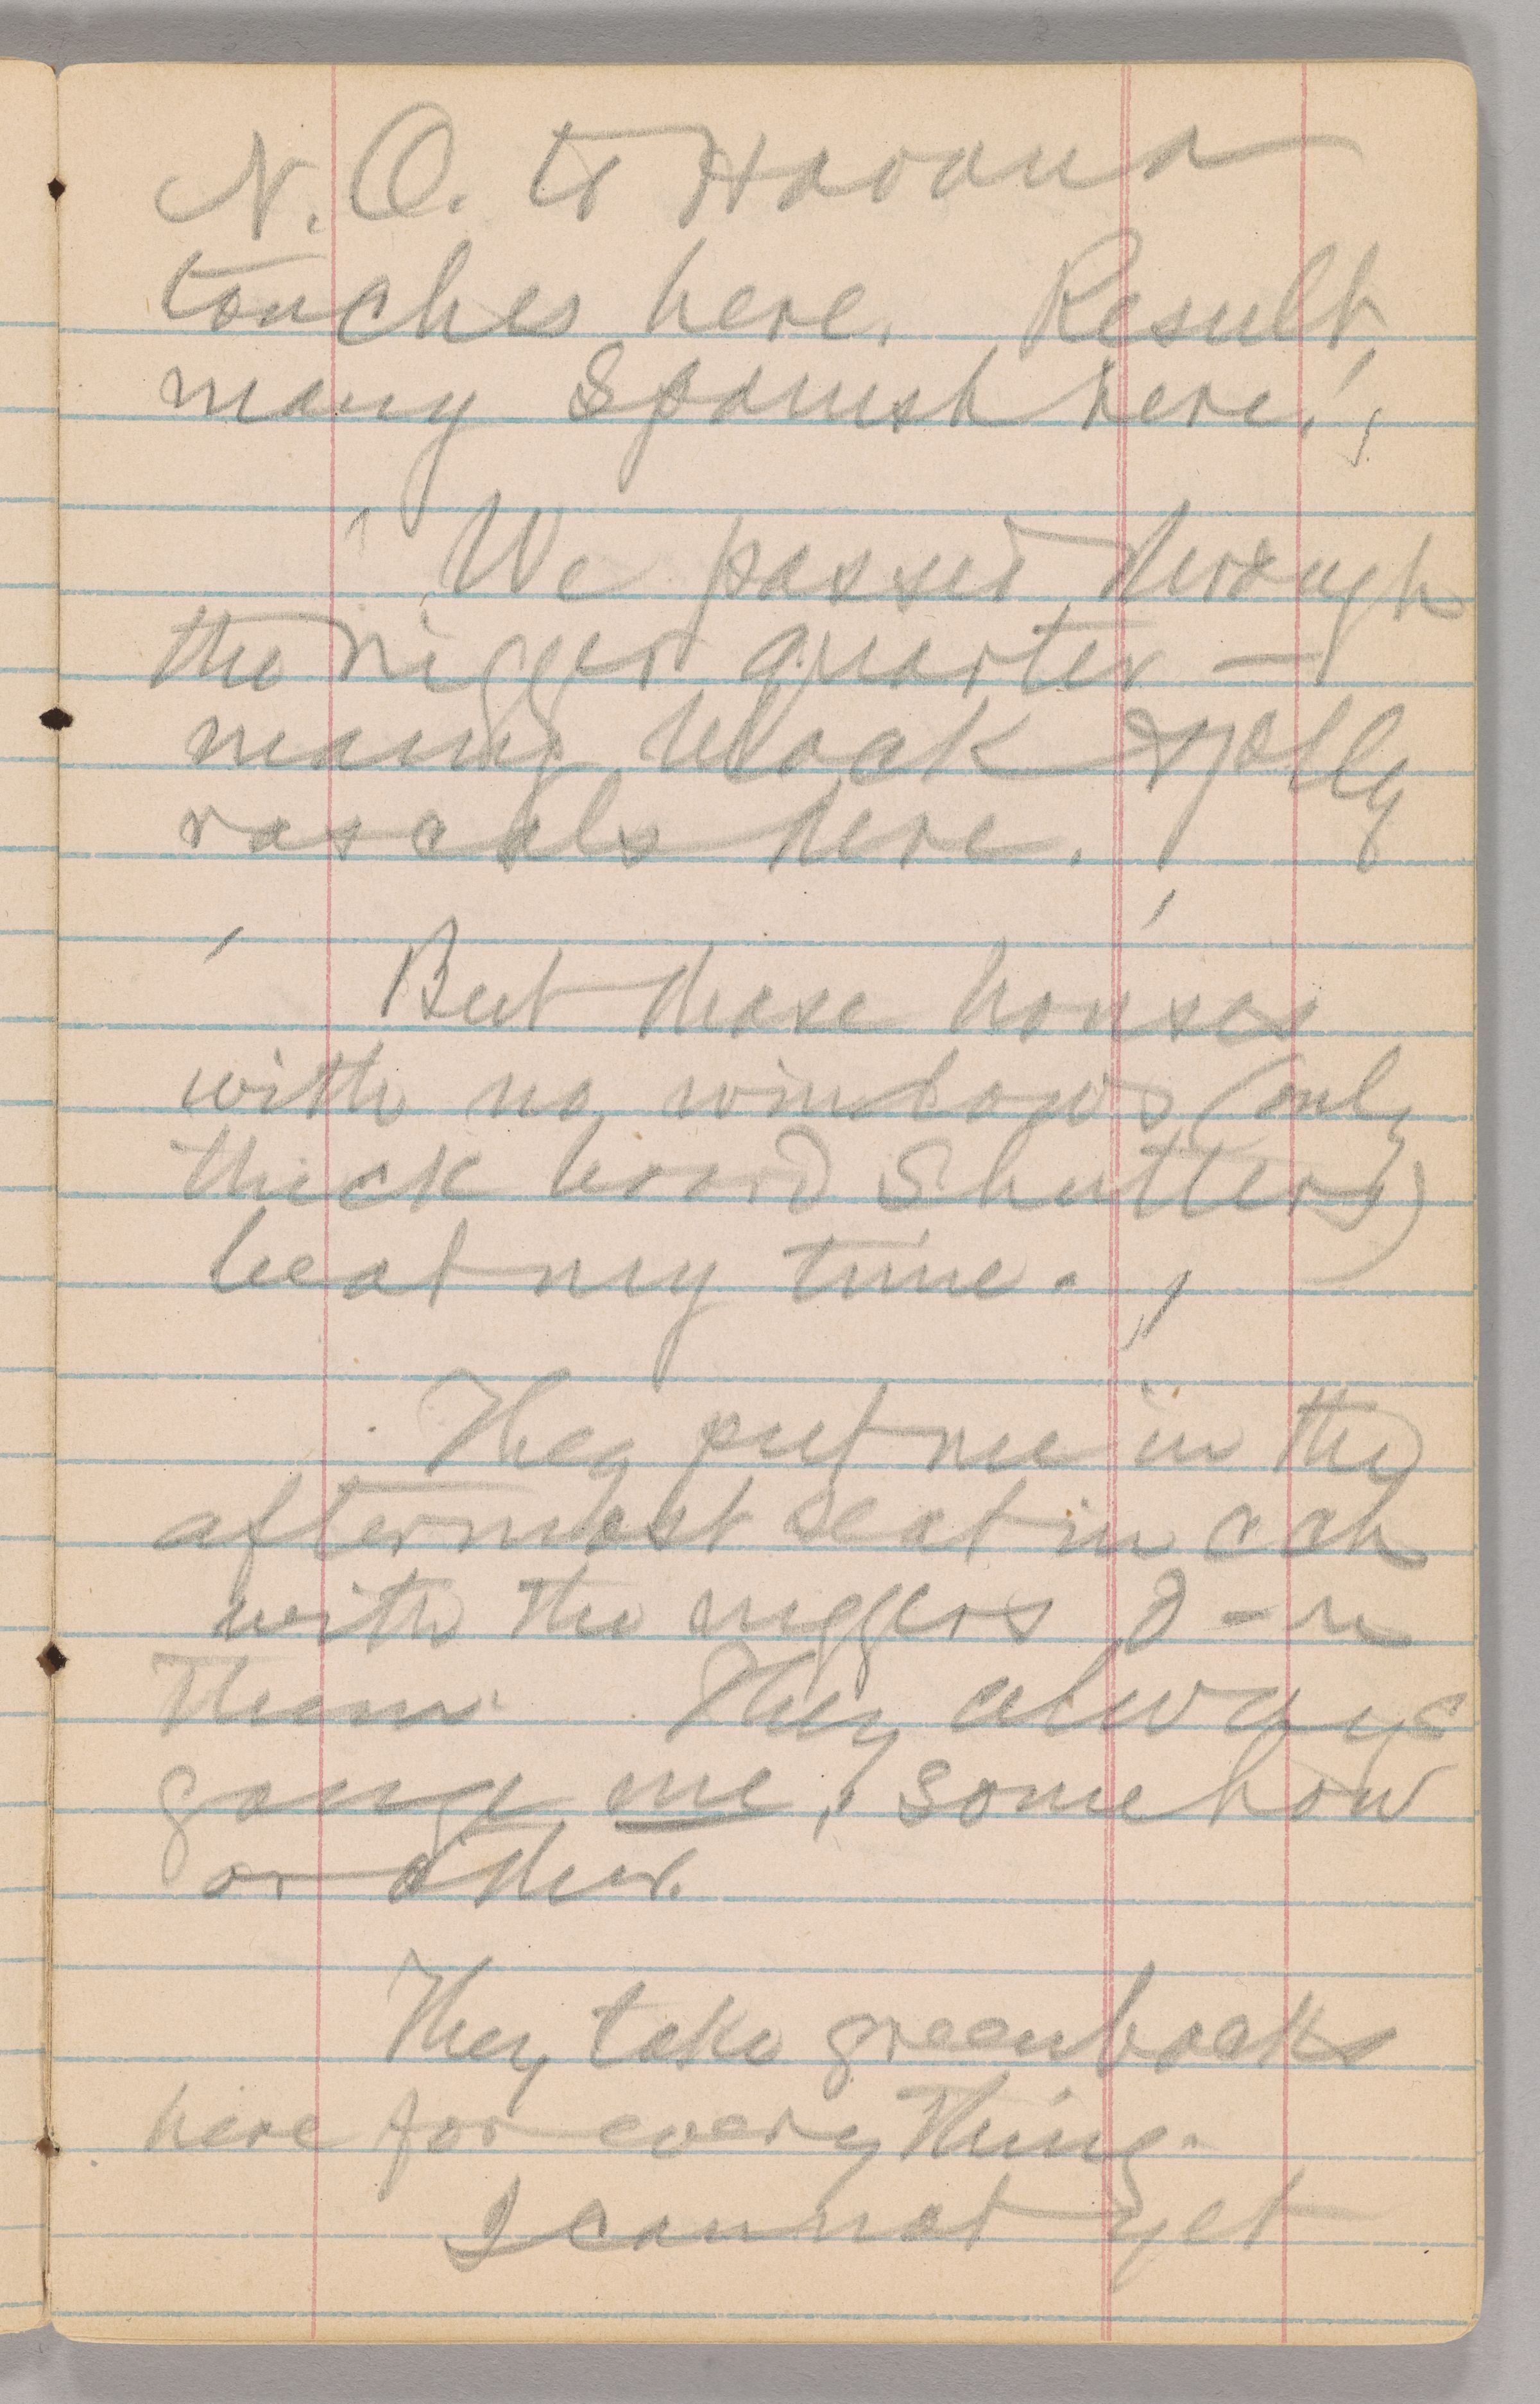 N. O. to Havana
touches here. Result,
many Spanish here.
We passed through
the nigger quarter —
many black & jolly
rascals here.
But these houses
with no windows (only
thick board shutters)
beat my time.
They put me in the
aftermost seat in cah
with the niggers d—n
them. They always
gouge me, somehow
or other.
They take greenbacks
here for everything.
I cannot yet